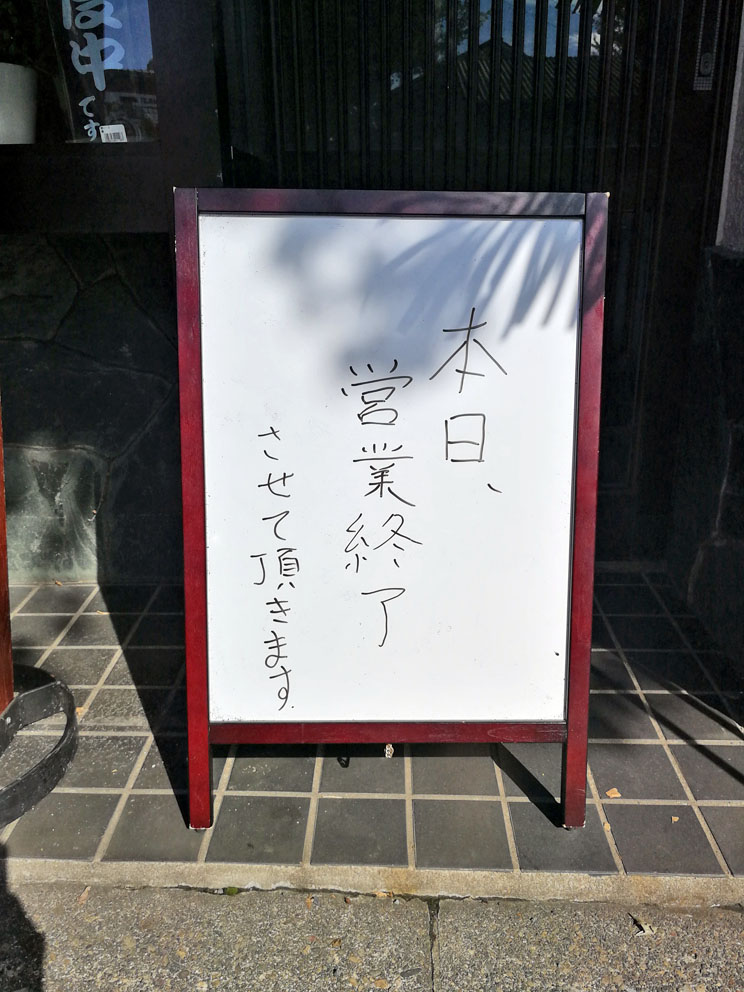 本日、
営業終了
させて頂きます.
中
です